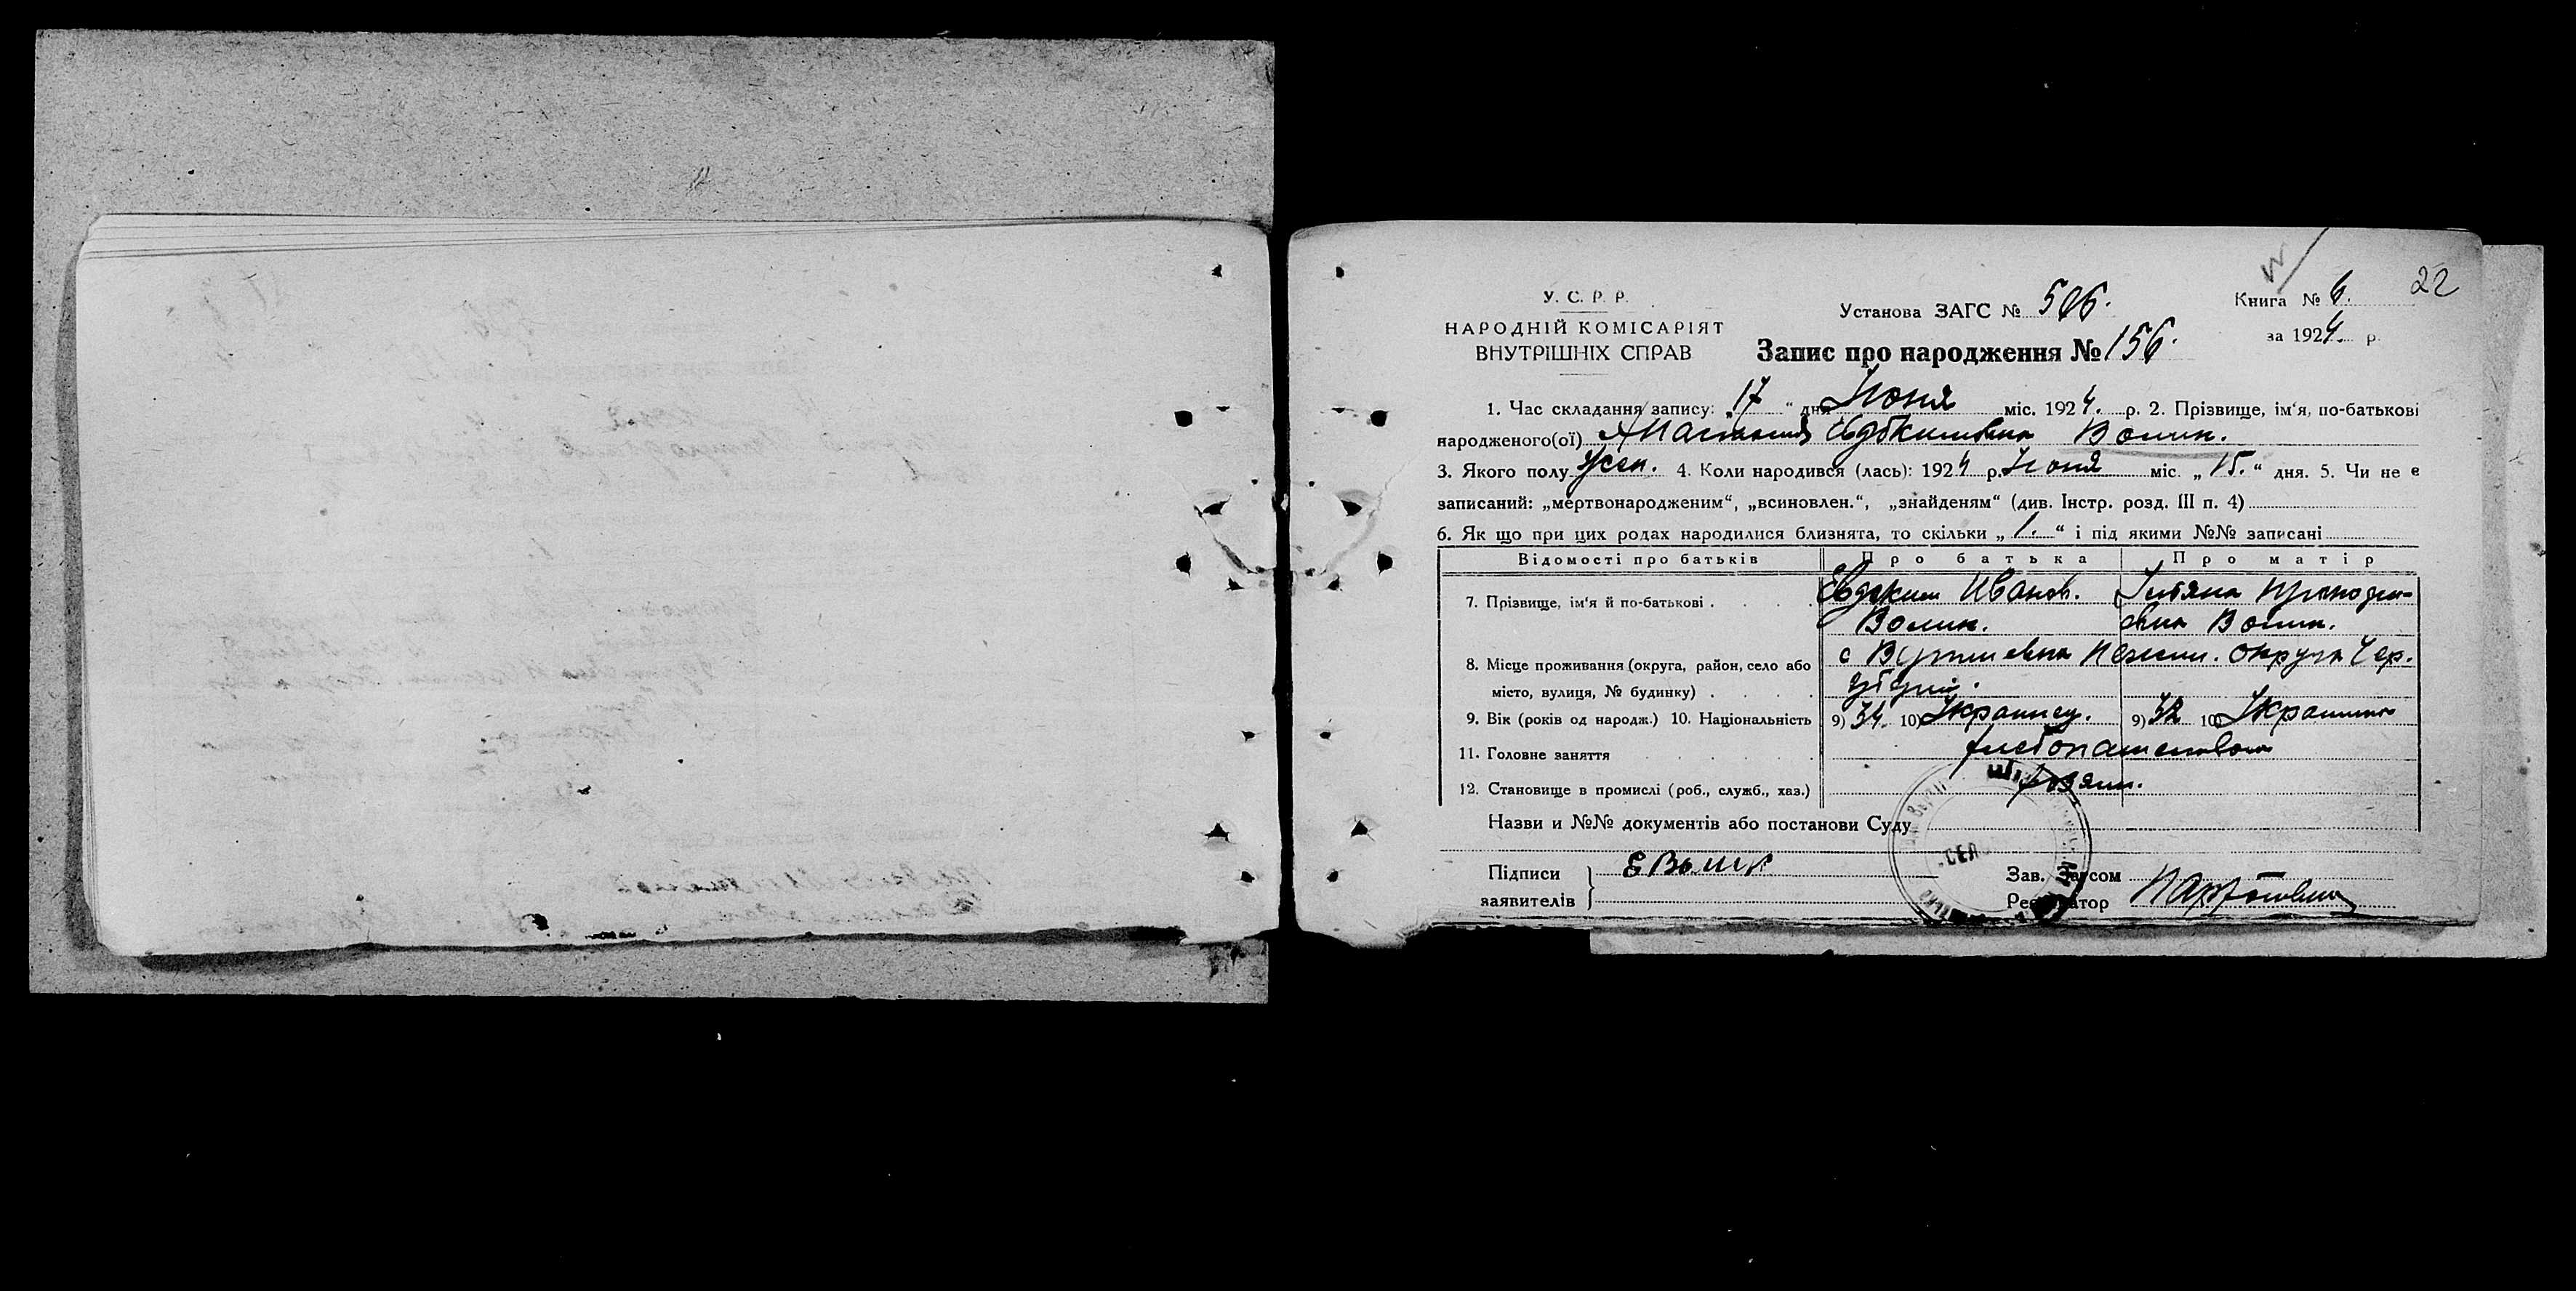 22
У. С. Р. Р.
НАРОДНІЙ КОМІСАРІЯТ
ВНУТРІШНІХ СПРАВ
Установа ЗАГС № 506.
Книга № 6.
за 1924. р.
Запис про народження № 156.
1. Час складання запису: „17“ дня Июня міс. 1924. р. 2. Прізвище, ім'я, по-батькові
народженого(ої) Анастасия Евдокимовна Волик.
3. Якого полу Жен. 4. Коли народився (лась): 1924 р. Июня міс. „15.“ дня. 5. Чи не е
записаний: „мертвонародженим“, „всиновлен.“, „знайденям“ (див. Інстр. розд. III п. 4)
6. Як що при цих родах народилися близнята, то скільки „1.“ і під якими №№ записані
Відомості про батьків Про батька Про матір
7. Прізвище, ім'я й по-батькові Евдоким Иванов. Волик.
Волик.
8. Місце проживання (округа, район, село або с Нежин. Округа Чер.
місто, вулиця, № будинку) губерні.
9. Вік (років од народж.) 10. Національність 9) 34. 10) Украинец. 9) 32 10) Украинка
11. Головне заняття хлебопашество
12. Становище в промислі (роб., служб., хаз.) хозяин.
Назви и №№ документів або постанови Суду
Підписи Е Волик Зав. Загсом
заявителів Реєстратор